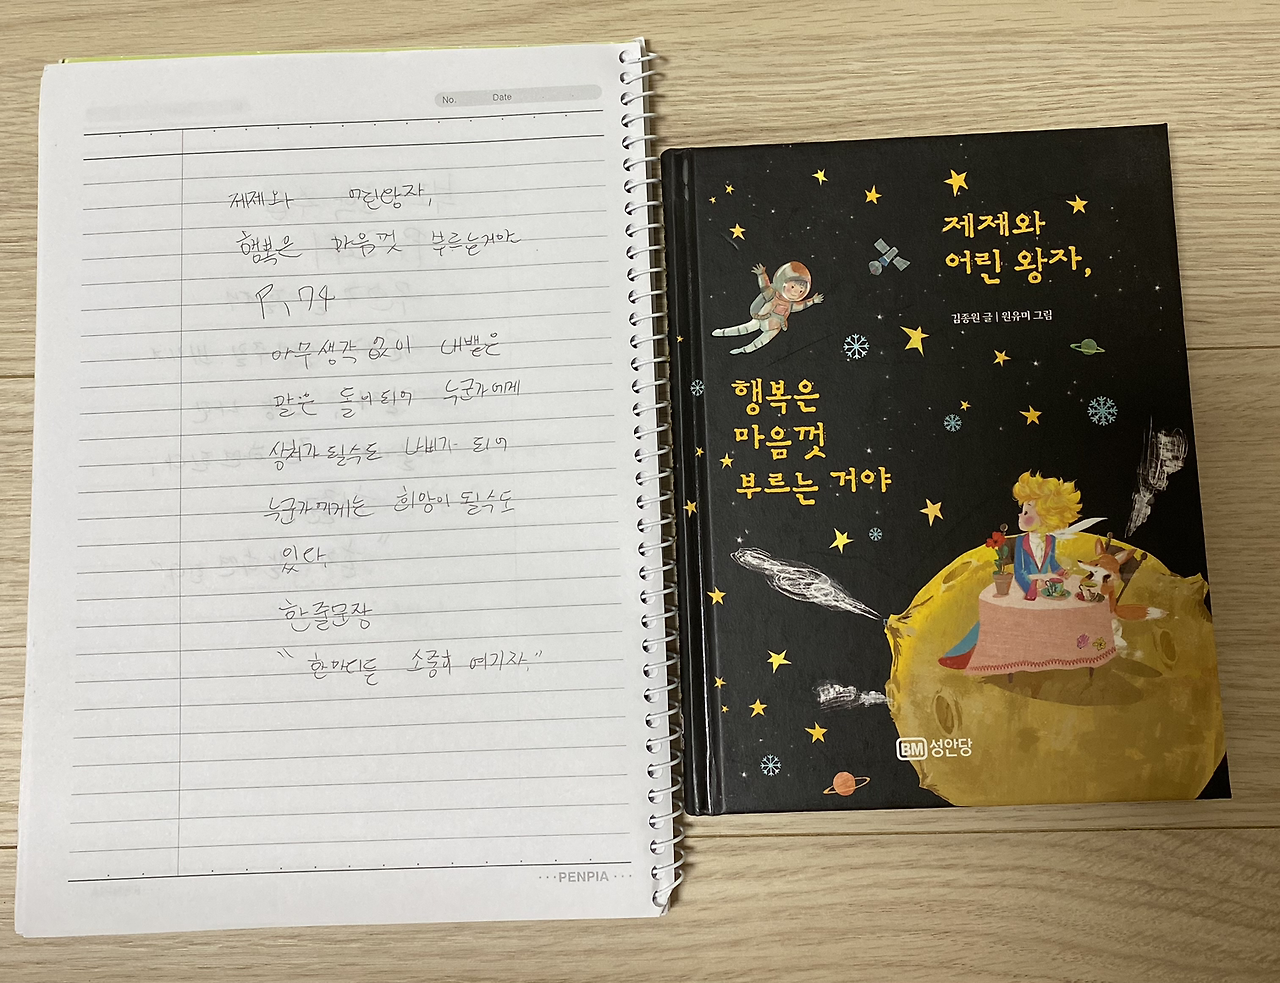 No. Date
제제와 어린왕자,
행복은 마음껏 부르는거야
P. 74
아무생각 없이 내뱉은
말은 돌이되어 누군가에게
상처가 될수도 나비가 되어
누군가에게는 희망이 될수도
있다.
한줄문장
"한마디를 소중히 여기자."
PENPIA
제제와
어린 왕자,
김종원 글 | 원유미 그림
행복은
마음껏
부르는 거야
BM 성안당